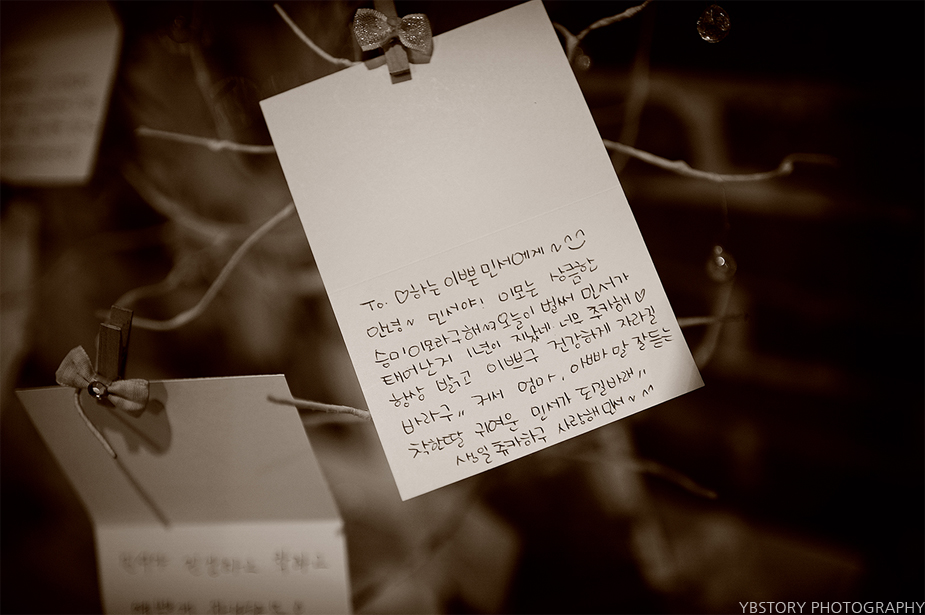 To. ♡하는 이쁜 민서에게~
안녕~ 민서야! 이모는 상큼한
승미이모라구해~ 오늘이 벌써 민서가
태어난지 1년이 지났네 너무 츄카해♡
항상 밝고 이쁘구 건강하게 자라길
바라구〃 커서 엄마, 아빠 말 잘듣는
착한딸 귀여운 민서가 되길바래〃
생일 츄카하구 사랑해 민서~
YBSTORY PHOTOGRAPHY